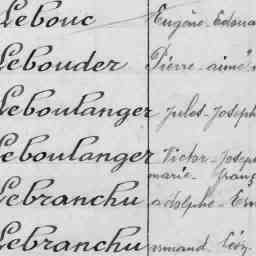 Lebouc Eugène-Edoua
Lebouder Pierre-aimé
Leboulanger Jules-Joseph
Leboulanger Victor-Josep
marie-franç
Lebranchu adolphe-Ern
Lebranchu armand Léon